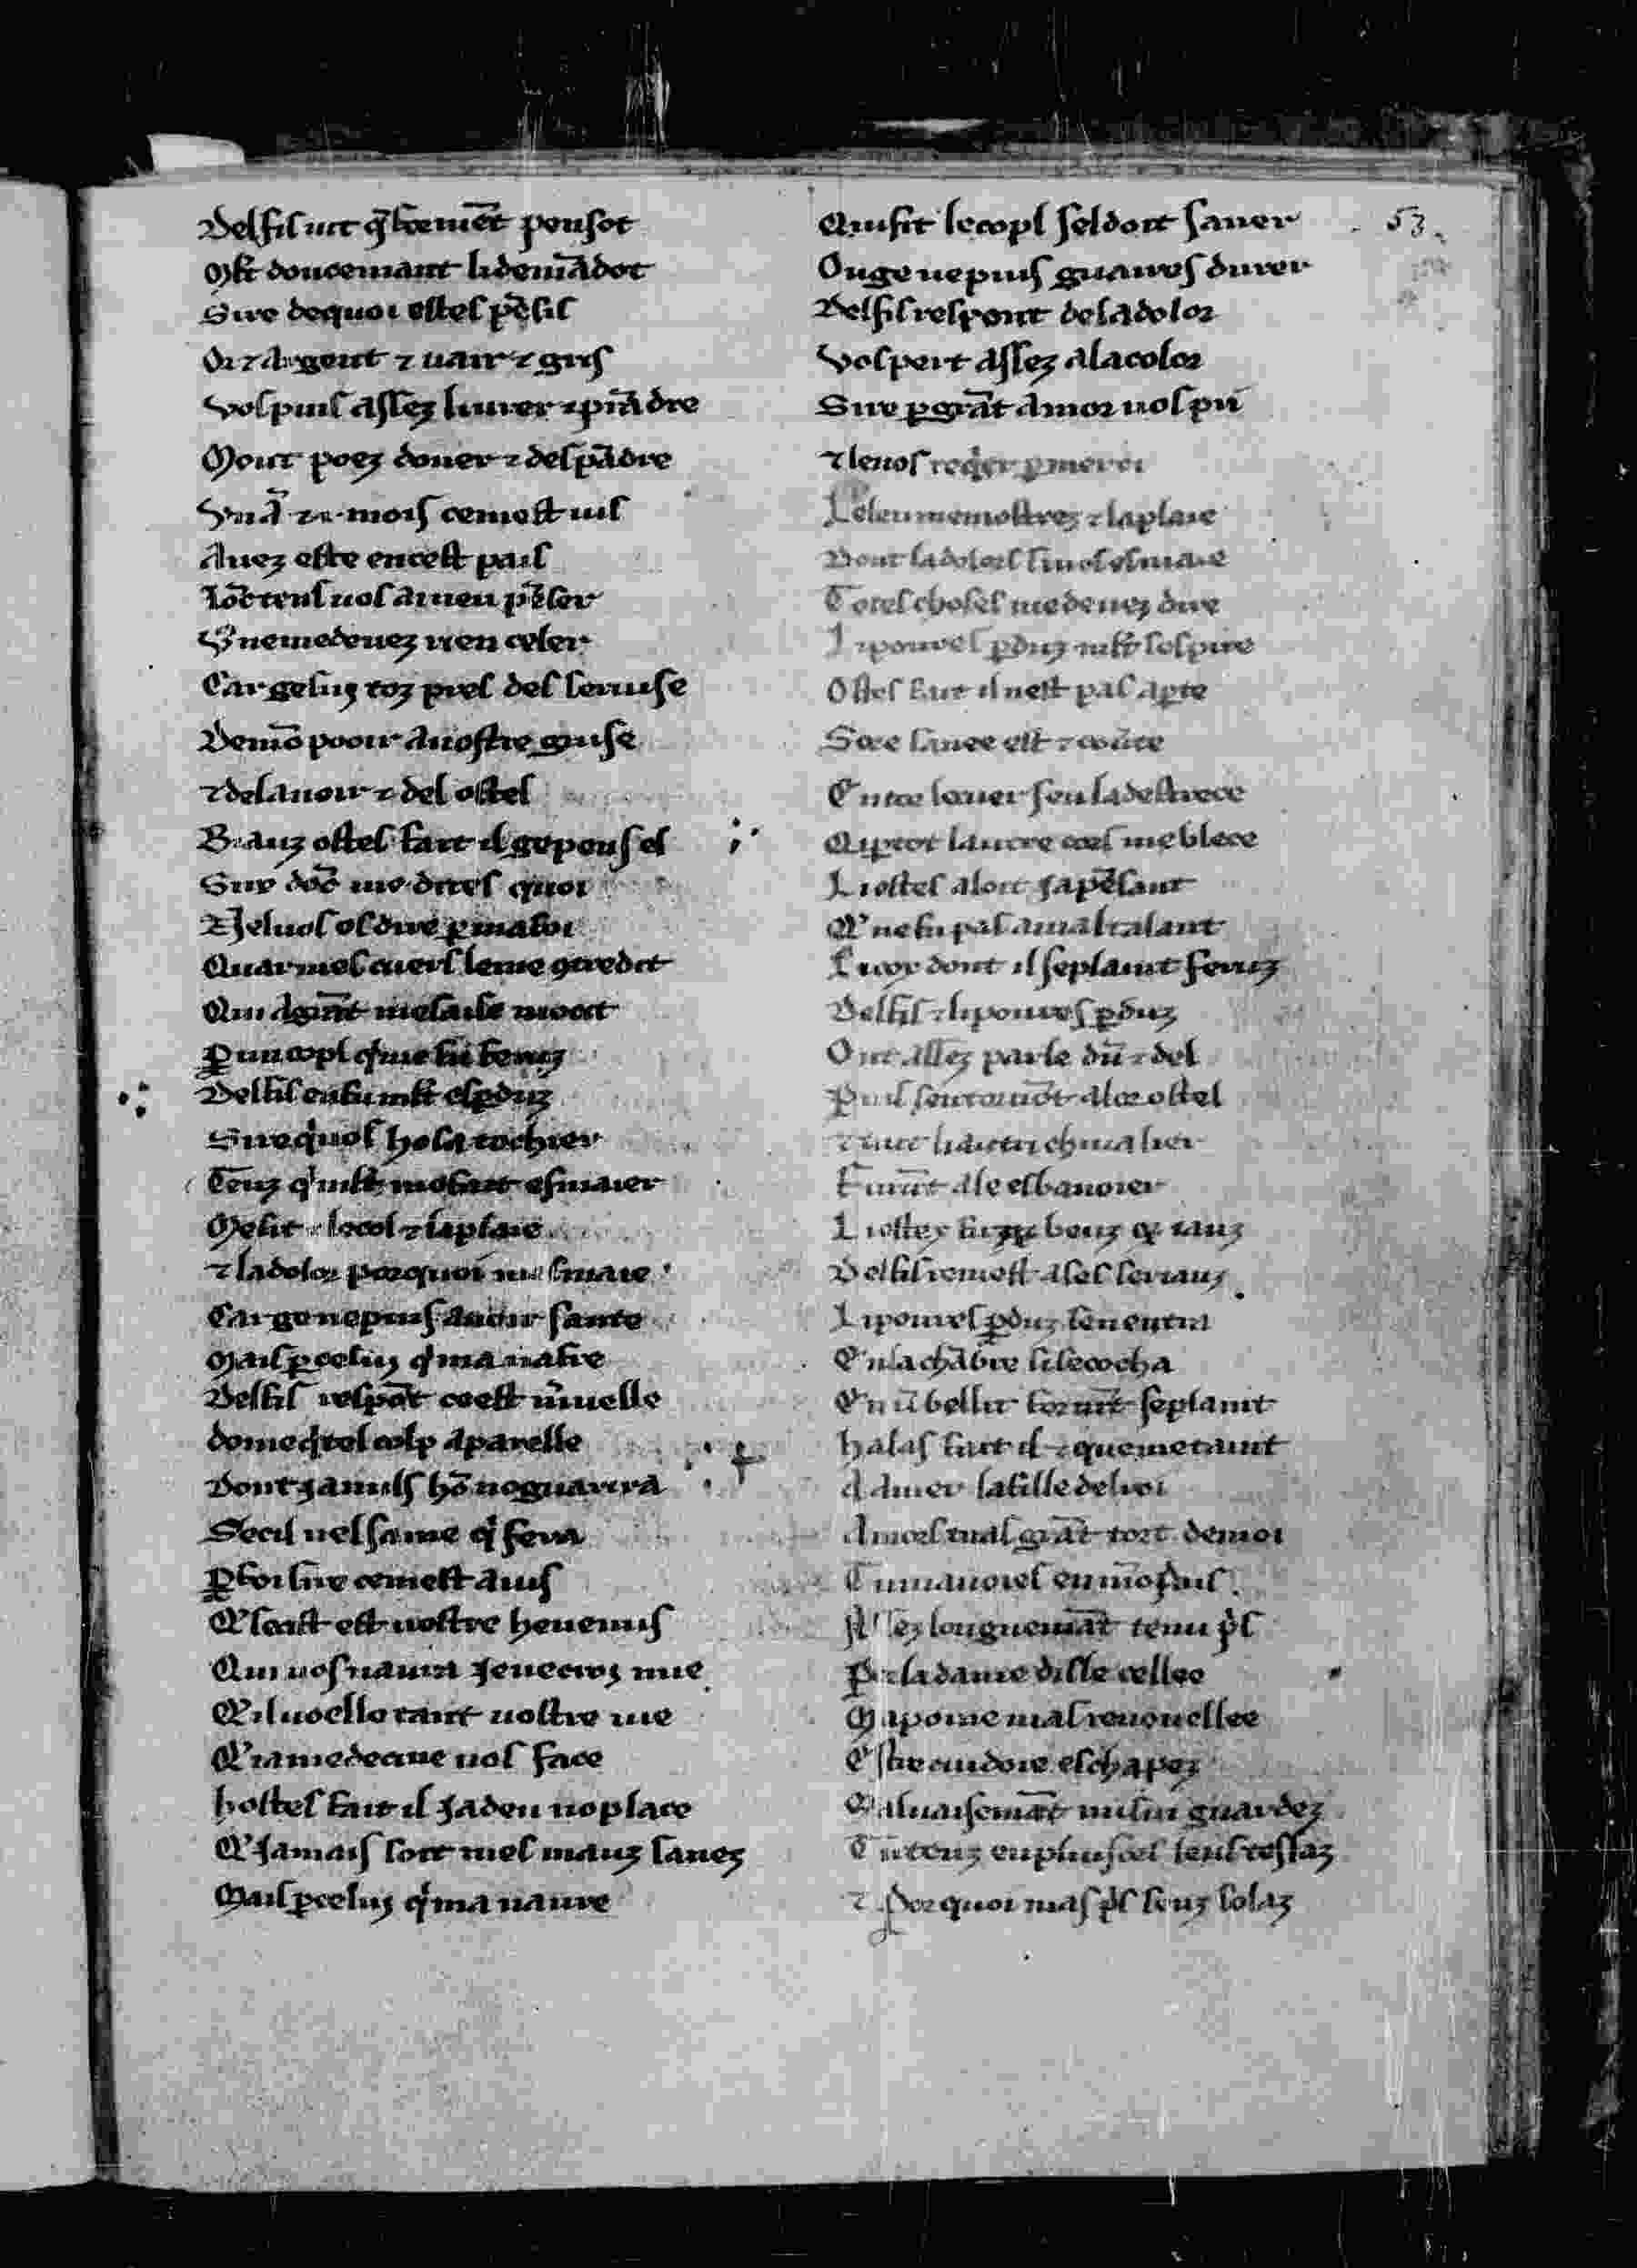 Delfis uit q̃ formẽt pensot
Mlt doucemant li demãdot
Sire de quoi estes pẽsis
Or ⁊ argent ⁊ uair ⁊ gris
Vos puis assez liurer ⁊ prãdre
Mout poez doner ⁊ despãdre
Un ã ⁊ mois ce mest uis
Auez este en cest pais
Lõc tens uos ai ueu pẽser
Si ne me deuez rien celer
Car ge sui toz prest del seruise
De mõ pooir a uostre guise
⁊ del auoir ⁊ del ostel
Biauz ostes fait il ge pens el
Sire dõc me dites quoi
Ne luos os dire ꝑ ma foi
Quar mes cuers le me ꝯtredit
Qui a grãt mesaise
ꝑ un copl q̉ me fu feruz
Delfis en fu mlt esꝑduz
Sire q̉ uos hosa tochier
Tenz q̉ mlt me fait esmaier
Me fit ⁊ le col ⁊ la plaie
⁊ la dolor por quoi mesmaie
Car ge ne puis auoir sante
Mais ꝑ celui q̉ ma naure
Delfis respõt ce est
dome q̉ tel colp aparelle
Dont iamais hõ ne guarira
Se cil nel sane q̉ feru
ꝑ foi sire ce mest auis
Q̉ ce est uostre henemis
Qui uos naura ie ne croz mie
Q̉ il uoelle tant uostre uie
Q̉ ia medecine uos face
hostes fait il ia deu ne place
Q̉ iamais soit mes mauz sanez
Mais ꝑ celui q̉ ma naure
53.
Qui fit le copl sel doit saner
Ou ge ne puis guaires durer
Delfis respont de la dolor
Vos pert assez a la color
Sire ꝑ grãt amor uos pri
⁊ se uos reqier ꝑ merci
Le leu me mostrez ⁊ la plaie
Dont la dolors si uos esmaie
Totes choses me deuez dire
Li poures ꝑduz mlt sospire
Ostes fait il nest pas aꝑte
Soz lance est ⁊ couerte
Entre le uer sen la destrece
Q̉ ꝑ tot lautre cors me blece
Li ostes aloit ia pẽsant
Q̉ ne fu pas a mal talant
Li cox dont il se plaint feruz
Delfis ⁊ li poures ꝑduz
Ont assez parle dũ ⁊ del
Puis sen tornõt a lor ostel
⁊ tuit li autri cheualier
Furẽt ale esbanoier
Li ostes fu
Delfis remest a ses
Li poures ꝑduz sen entra
En la chãbre si se cocha
En ũ bellit formẽt se plaint
halas fait il ⁊ que me taint
d amer la fille del roi
Amors tu as grãt tort de moi
Tu mauoies en mõ pais
Assez longuemãt tenu pris
Por la dame disle cellee
Ma poine mas renouellee
Estre cuidoie eschapez
Maluaisemãt mi sui guardez
Tu tenz en plusors leus tes laz
⁊ Por quoi mas pris senz solaz